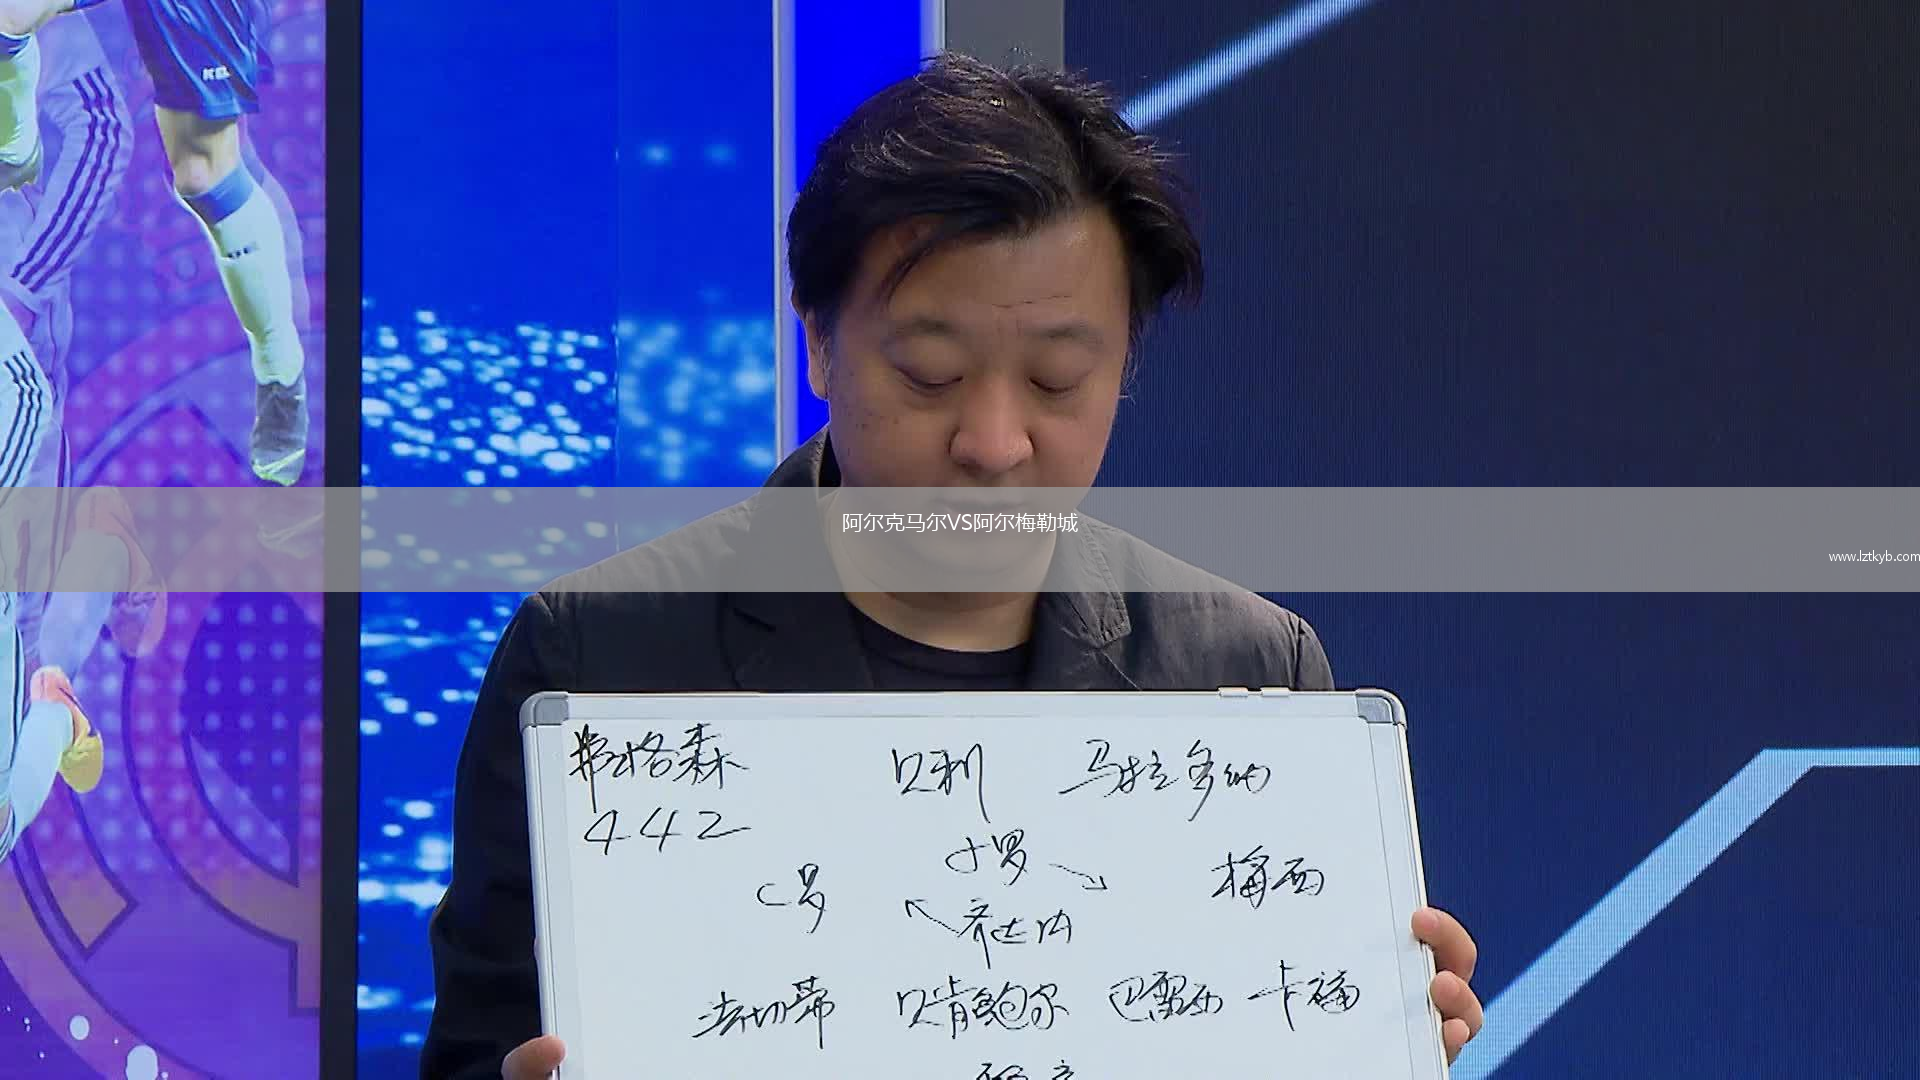 阿尔克马尔VS阿尔梅勒城
www.lztkyb.com
弗格森 贝利 马拉多纳
442
小罗
C罗 梅西
齐达内
法切蒂 贝肯鲍尔 巴雷西 卡福